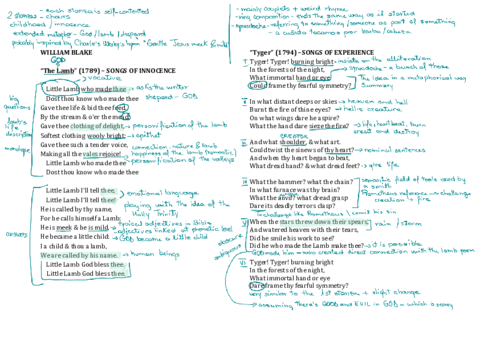 - each stanza is self-contained
2 stanzas - chairs
childhood / innocence
extended metaphor - God / lamb / shepard
probably inspired by Charles Wesley's hymn "Gentle Jesus meek & mild"
WILLIAM BLAKE
GOD
"The Lamb" (1789) – SONGS OF INNOCENCE
vocative
Little Lamb who made thee → asks the writer
Dost thou know who made thee shepard - GOD
big questions
Gave thee life & bid thee feed.
By the stream & o'er the mead;
lamb's life description
Gave thee clothing of delight, → personification of the lamb
Softest clothing wooly bright; → epithet
Gave thee such a tender voice, connection, nature & lamb
Making all the vales rejoice! → happiness of the lamb (romantic)
Little Lamb who made thee → personification of the valleys
Dost thou know who made thee
Little Lamb I'll tell thee, → emotional language
Little Lamb I'll tell thee!
He is called by thy name, playing with the idea of the Holy Trinity
For he calls himself a Lamb:
He is meek & he is mild, → typical adjectives - Bible
adjectives linked at phonetic level
He became a little child: → GOD became a little child
answers
I a child & thou a lamb,
We are called by his name. → human beings
Little Lamb God bless thee.
Little Lamb God bless thee.
- mainly couplets + weird rhyme
- ring composition - ends the same way as it started
- synecdoche - referring to something / someone as part of something
"Tyger" (1794) – SONGS OF EXPERIENCE
I Tyger! Tyger! burning bright - insists on the alliteration
In the forests of the night, synecdoche - a bunch of those
What immortal hand or eye The idea in a metaphorical way
Could frame thy fearful symmetry? Summary
II In what distant deeps or skies → heaven and hell
Burnt the fire of thine eyes? → hellish creature
On what wings dare he aspire?
What the hand dare seize the fire? → life, heartbeat, burn
create and destroy
creator
III And what shoulder, & what art.
Could twist the sinews of thy heart? → nominal sentences
And when thy heart began to beat,
What dread hand? & what dread feet? → give life
IV What the hammer? what the chain? semantic field of tools used by a smith
In what furnace was thy brain?
What the anvil? what dread grasp Prometheus reference → challenge
Dare its deadly terrors clasp? creation + fire
to challenge like Prometheus / commit his sin
V When the stars threw down their spears rain / storm
And watered heaven with their tears,
Did he smile his work to see?
Did he who made the Lamb make thee? → it is possible
GOD made him - who created direct connection with the lamb poem
VI Tyger! Tyger! burning bright
In the forests of the night,
What immortal hand or eye
Dare frame thy fearful symmetry?
very similar to the 1st stanza → slight change
→ assuming there's GOOD and EVIL in GOD -